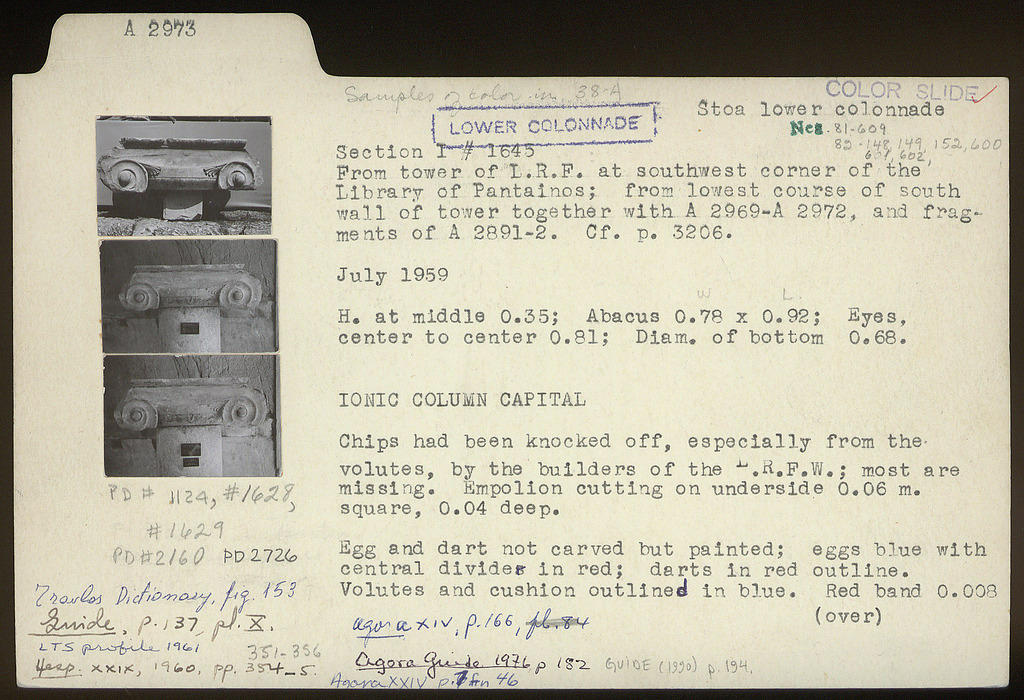 A 2973
Samples of color in 38-A
COLOR SLIDE
LOWER COLONNADE
Stoa lower colonnade
Neg. 81-609
82-148, 149, 152, 600
601, 602,
Section I # 1645
From tower of L.R.F. at southwest corner of the
Library of Pantainos; from lowest course of south
wall of tower together with A 2969-A 2972, and frag-
ments of A 2891-2. Cf. p. 3206.
July 1959
W L.
H. at middle 0.35; Abacus 0.78 x 0.92; Eyes,
center to center 0.81; Diam. of bottom 0.68.
IONIC COLUMN CAPITAL
Chips had been knocked off, especially from the
volutes, by the builders of the L.R.F.W.; most are
missing. Empolion cutting on underside 0.06 m.
square, 0.04 deep.
Egg and dart not carved but painted; eggs blue with
central divides in red; darts in red outline.
Volutes and cushion outlined in blue. Red band 0.008
(over)
PD # 1124, #1628,
#1629
PD#2160 PD2726
Travlos Dictionary, fig. 153
Guide, p. 137, pl. X.
LTS profile 1961
351-356
Hesp. XXIX, 1960, pp. 354-5.
Agora XIV, p. 166, pl. 84
Agora Guide 1976 p 182
GUIDE (1990) p. 194.
Agora XXIV p. 7 fn 46